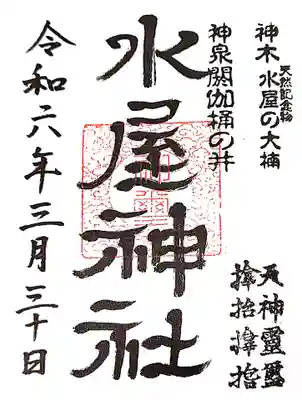 天然記念物
神木 水屋の大楠
神泉 閼伽桶の井
水屋神社
令和六年三月三十日
神靈